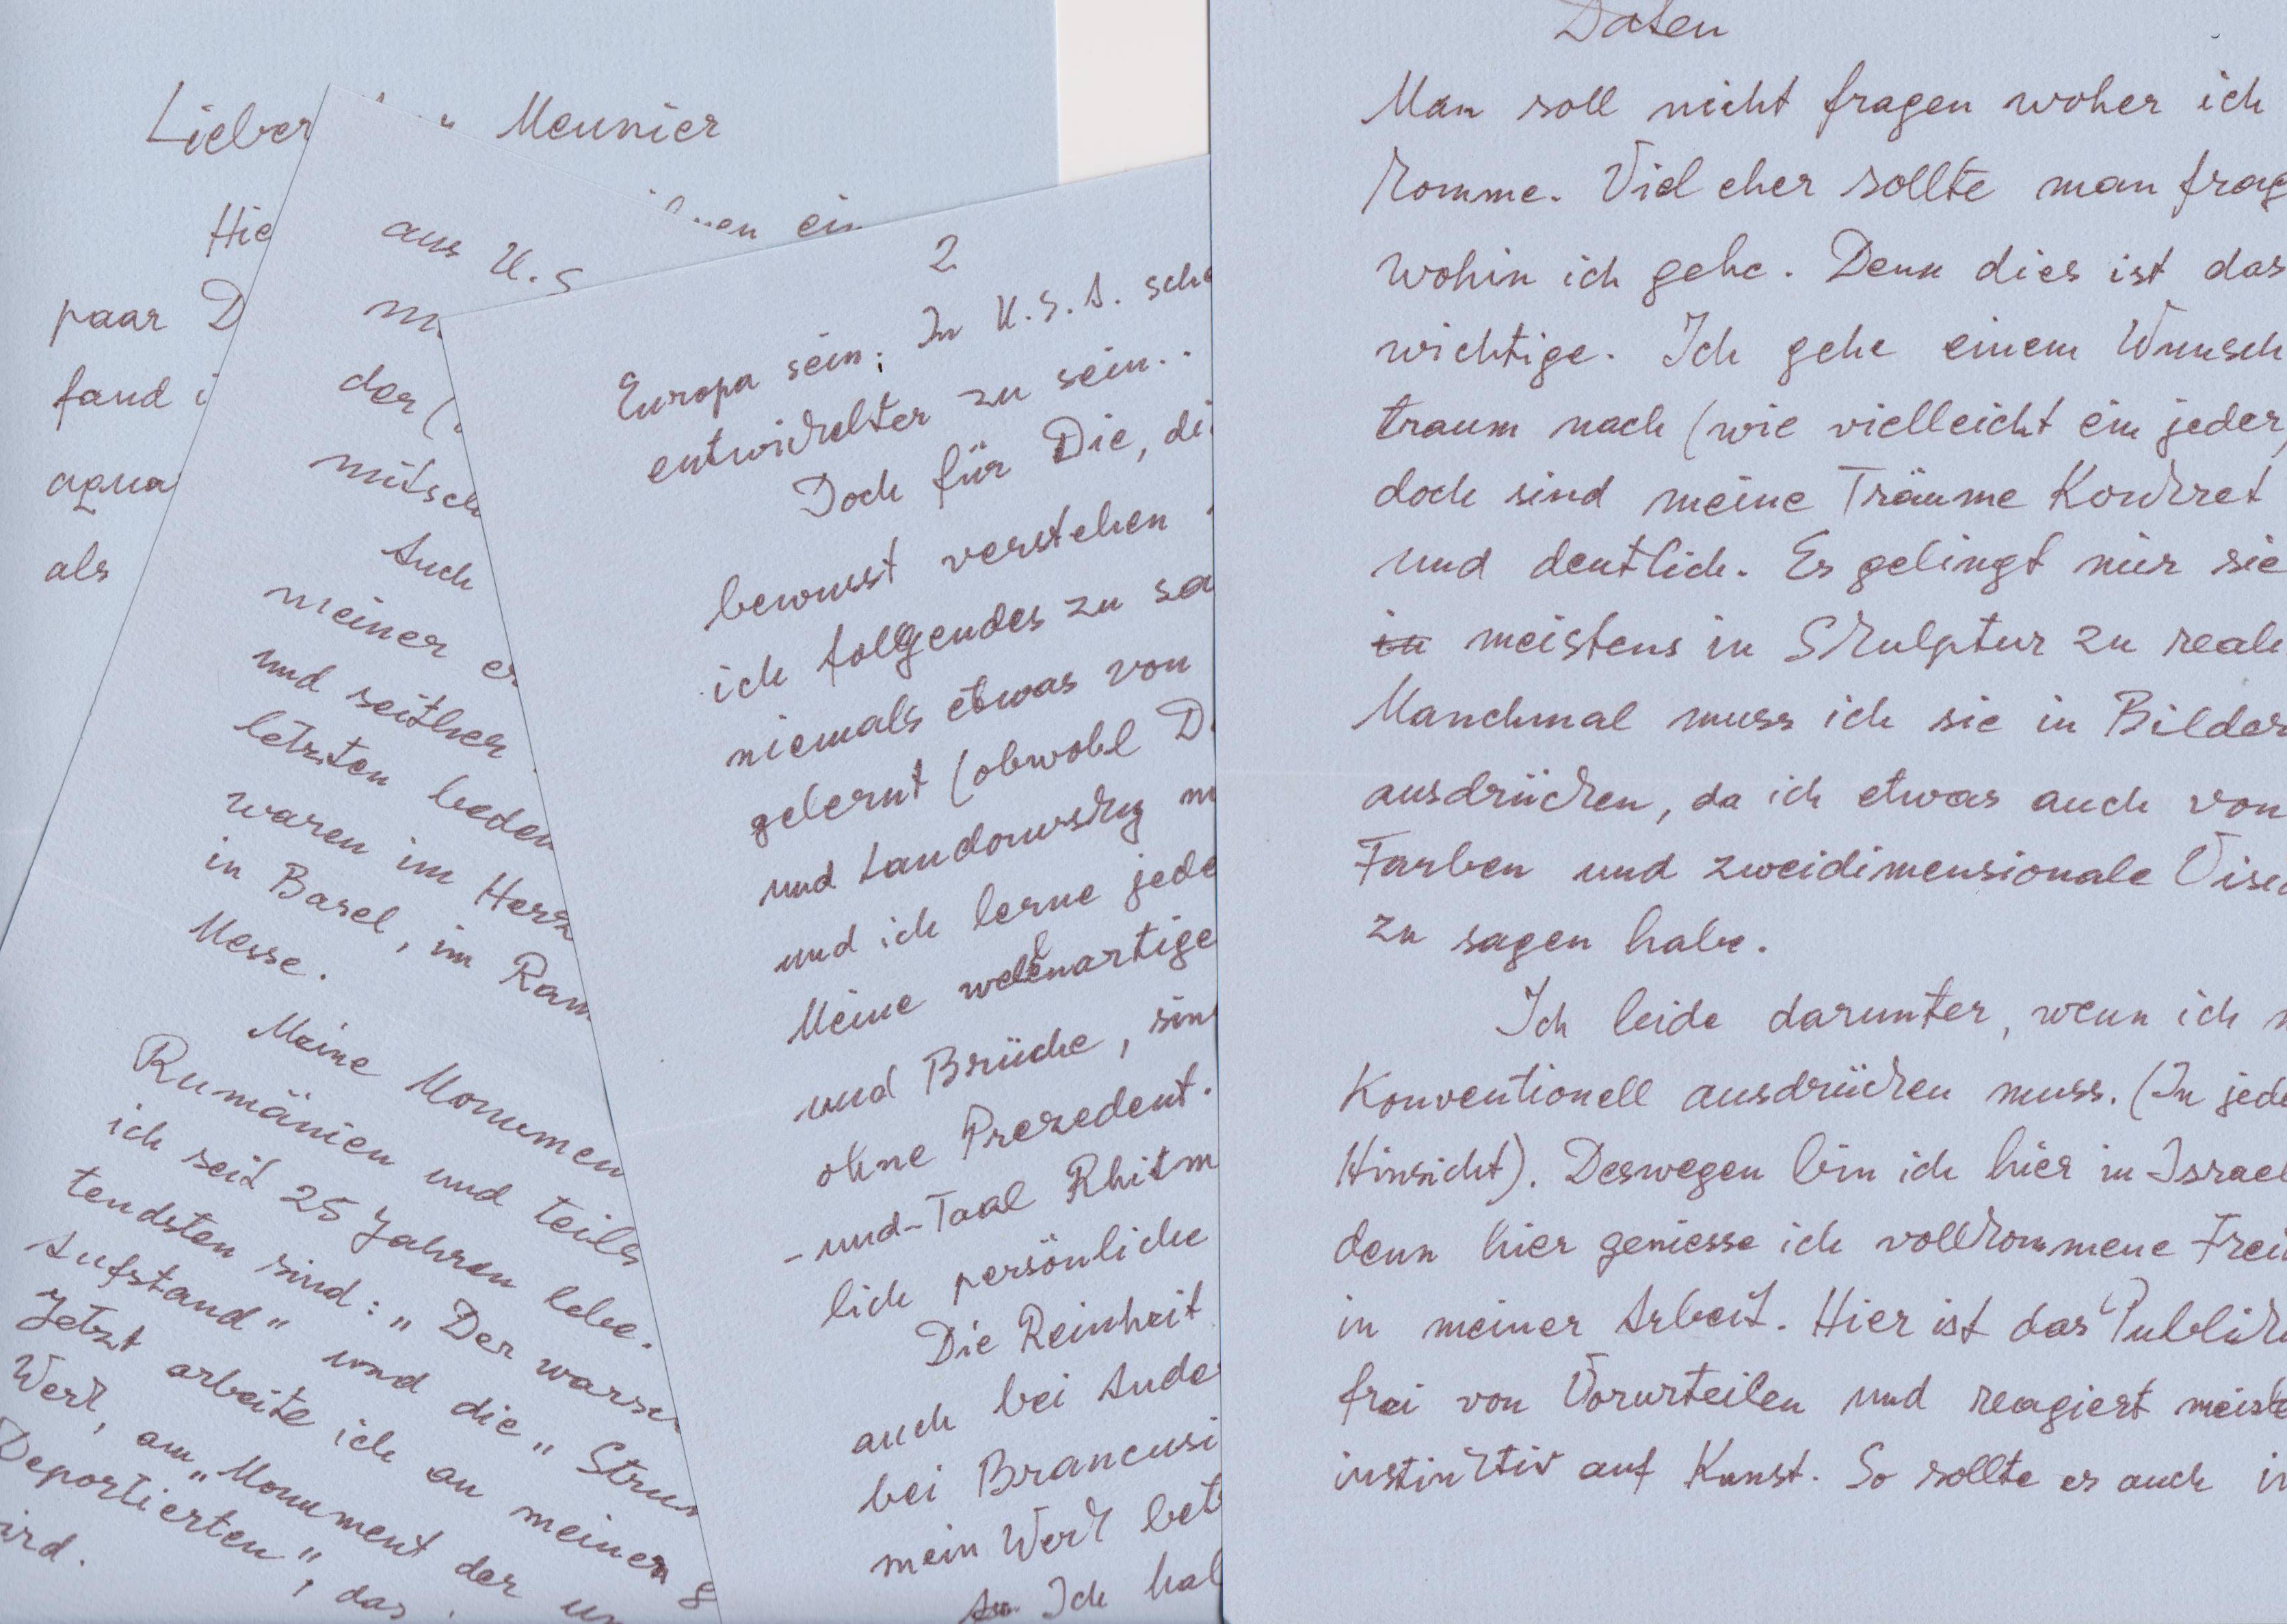 Lieber Meunier
Hie
ein
paar D
fand i
aqua
als
aus U.S
m
der (
mitsch
Auch
meiner e
und seither
letzten bedeu
waren im Herz
in Basel, im Ram
Messe.
Meine Monumen
Rumänien und teils
ich seit 25 Jahren lebe.
tendsten sind: „Der warsch
Aufstand" und die „Stru
Jetzt arbeite ich an meinen g
Werk, am „Monument der un
Deportierten", das
ird.
2
Europa sein; In U.S.A. sche
entwickelter zu sein..
Doch für Die, di
bewusst verstehen
ich folgendes zu sa
niemals etwas von
gelernt (obwohl D
und Landowsky m
und ich lerne jede
Meine wellenartige
und Brüche, sin
ohne Prezedent.
-und-Taal Rhitm
lich persönliche
Die Reinheit
auch bei Ande
bei Brancusi
mein Werk bet
Ich hal
Daten
Man soll nicht fragen woher ich
komme. Viel eher sollte man frag
wohin ich gehe. Denn dies ist das
wichtige. Ich gehe einem Wunsch
traum nach (wie vielleicht ein jeder,
doch sind meine Träume Konkret
und deutlich. Es gelingt mir sie
in meistens in Skulptur zu reali
Manchmal muss ich sie in Bilder
ausdrücken, da ich etwas auch von
Farben und zweidimensionale Visio
zu sagen habe.
Ich leide darunter, wenn ich m
Konventionell ausdrücken muss. (In jede
Hinsicht). Deswegen bin ich hier in Israel
denn hier geniesse ich vollkommene Frei
in meiner Arbeit. Hier ist das Publiku
frei von Vorurteilen und reagiert meiste
instinktiv auf Kunst. So sollte es auch in